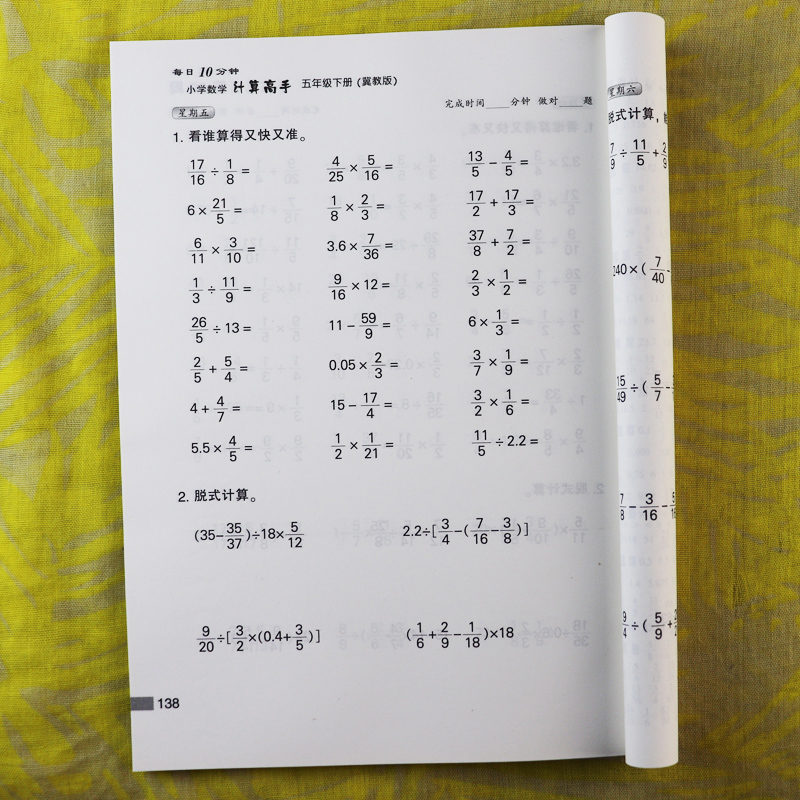 每日10分钟
小学数学 计算高手 五年级下册(冀教版)
星期五 完成时间____分钟 做对____题
1. 看谁算得又快又准。
17/16÷1/8= 4/25×5/16= 13/5-4/5=
6×21/5= 1/8×2/3= 17/2+17/3=
6/11×3/10= 3.6×7/36= 37/8+7/2=
1/3÷11/9= 9/16×12= 2/3×1/2=
26/5÷13= 11-59/9= 6×1/3=
2/5+5/4= 0.05×2/3= 3/7×1/9=
4+4/7= 15-17/4= 3/2×1/6=
5.5×4/5= 1/2×1/21= 11/5÷2.2=
2. 脱式计算。
(35-35/37)÷18×5/12 2.2÷[3/4-(7/16-3/8)]
9/20÷[3/2×(0.4+3/5)] (1/6+2/9-1/18)×18
138
星期六
脱式计算,
7/9÷11/5+2/9
240×(7/40-
15/49÷(5/7-
7/8-3/16-
9/4÷(5/9+